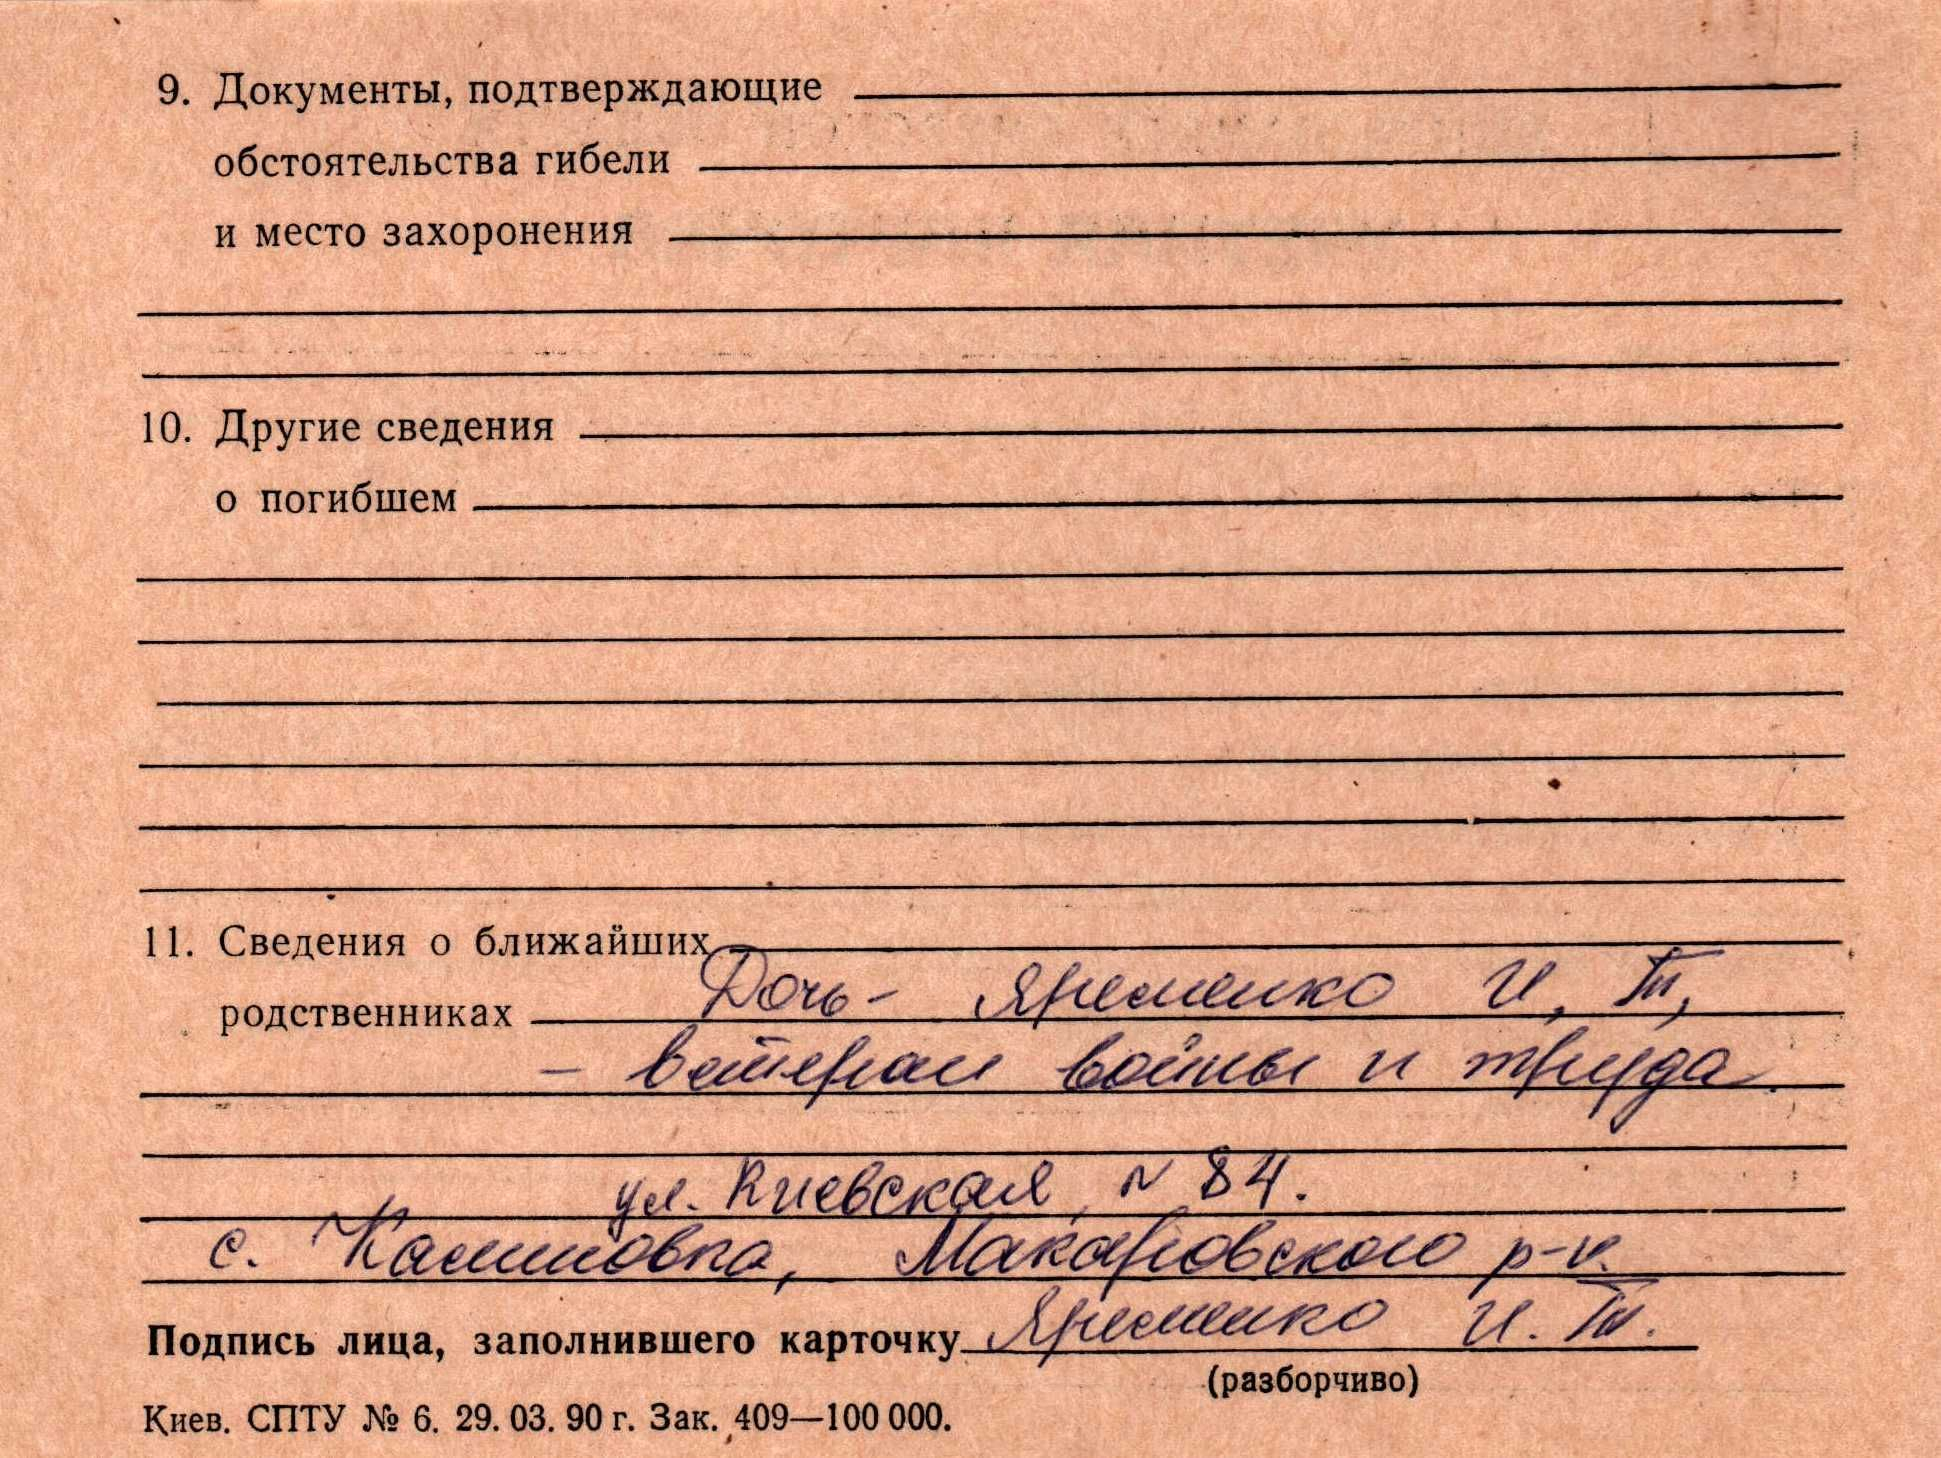 9. Документы, подтверждающие
обстоятельства гибели
и место захоронения
10. Другие сведения
о погибшем
11. Сведения о ближайших
родственниках Дочь - Яременко И. Т,
- ветеран войны и труда.
ул. Киевская, № 84.
с. Калиновка, Макаровского р-н.
Подпись лица, заполнившего карточку Яременко И. Т.
(разборчиво)
Киев. СПТУ № 6. 29. 03. 90 г. Зак. 409—100 000.